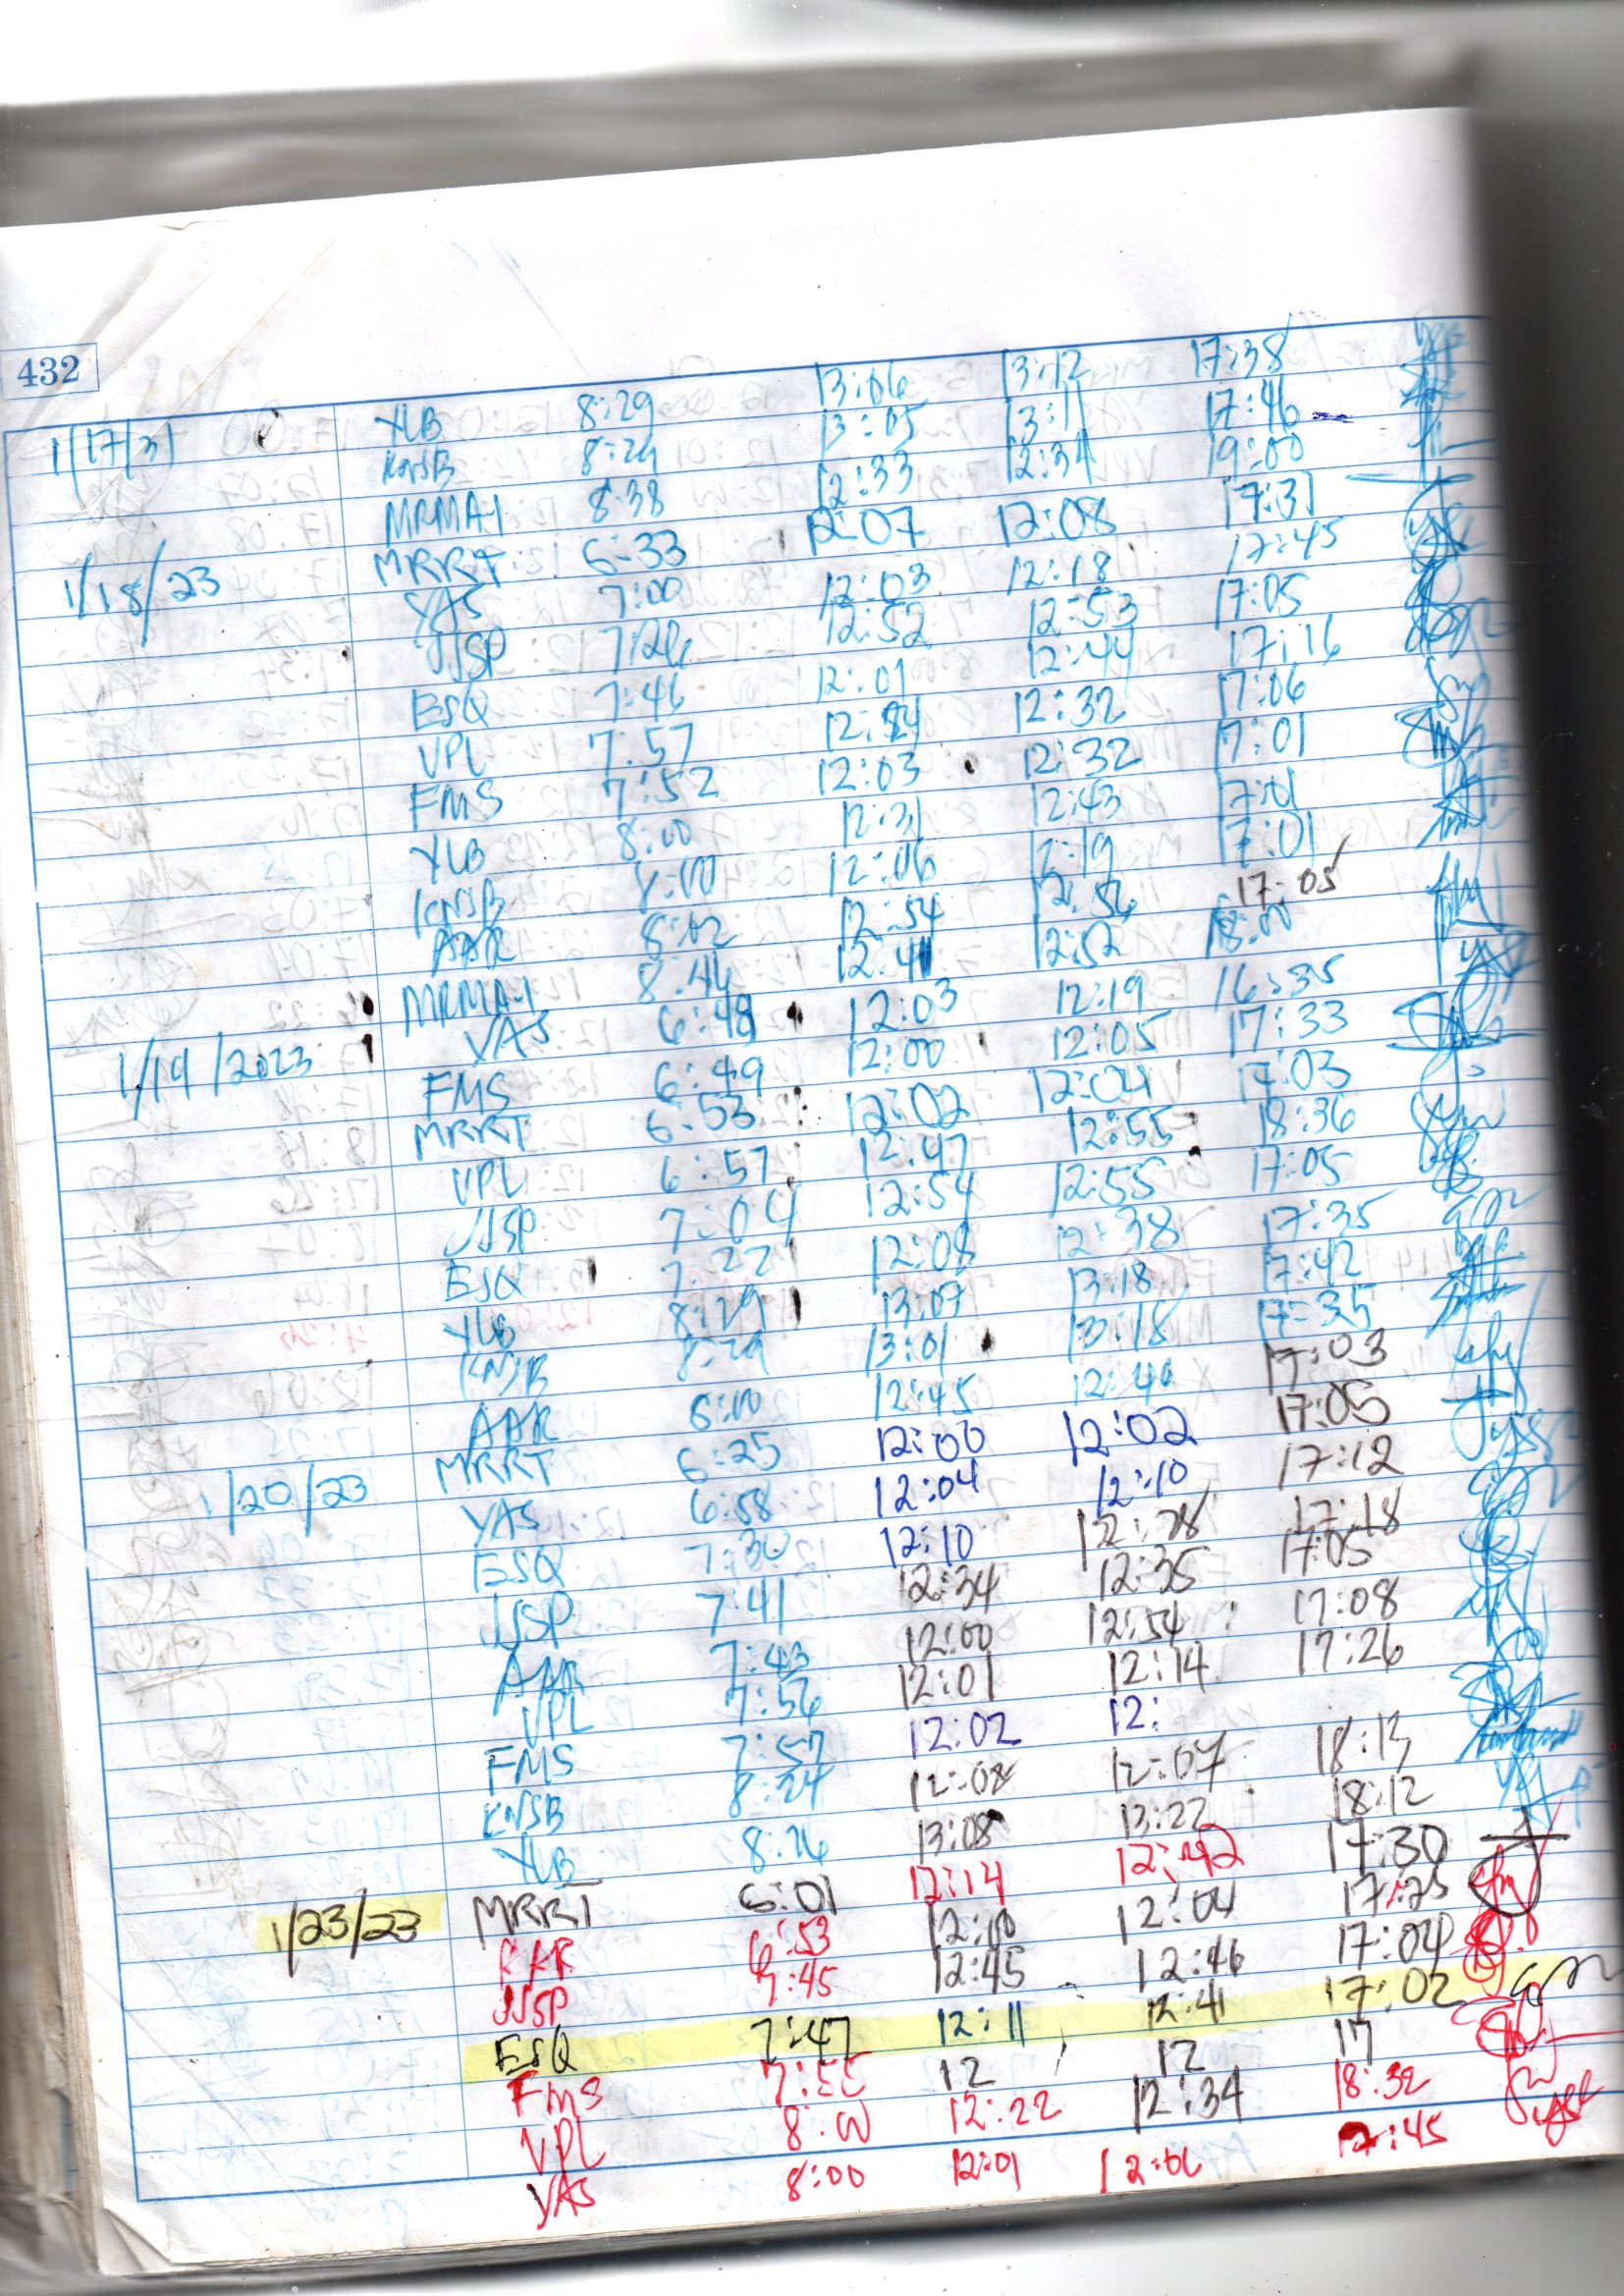 432
1/17/31 YLB 8:29 13:06 13:12 17:38
KNSB 8:29 13:05 13:11 17:46
MRMAH 8:38 12:33 12:34 19:00
1/18/23 MRRT 6:33 12:07 12:08 17:31
YAS 7:00 12:03 12:18 17:45
JJSP 7:26 12:52 12:53 17:05
ESQ 7:46 12:01 12:44 17:16
VPL 7:57 12:24 12:32 17:06
FMS 7:52 12:03 12:32 17:01
YLB 8:00 12:31 12:43 17:01
KNSB 8:00 12:06 12:19 17:01
AAR 8:02 12:54 12:56 17:05
MRMAH 8:46 12:41 12:52 18:00
1/19/2023 YAS 6:48 12:03 12:19 16:35
FMS 6:49 12:00 12:05 17:33
MRRT 6:53 12:02 12:04 17:03
VPL 6:57 12:47 12:55 18:36
JJSP 7:04 12:54 12:55 17:05
ESQ 7:22 12:08 12:38 17:35
YLB 8:29 13:07 13:18 17:42
KNSB 8:29 13:01 13:18 17:35
AAR 6:00 12:45 12:46 17:03
1/20/23 MRRT 6:25 12:00 12:02 17:05
YAS 6:58 12:04 12:10 17:12
ESQ 7:30 12:10 12:28 17:18
JJSP 7:41 12:34 12:35 17:05
AAR 7:43 12:00 12:54 17:08
VPL 7:56 12:01 12:14 17:26
FMS 7:57 12:02 12:
KNSB 8:24 12:08 12:07 18:13
YLB 8:26 13:08 13:22 18:12
1/23/23 MRRT 6:01 12:14 12:42 17:30
6:53 12:00 12:04 17:25
JJSP 7:45 12:45 12:46 17:04
ESQ 7:47 12:11 12:41 17:02
FMS 7:55 12 12 17
VPL 8:00 12:22 12:34 18:32
YAS 8:00 12:01 12:06 17:45